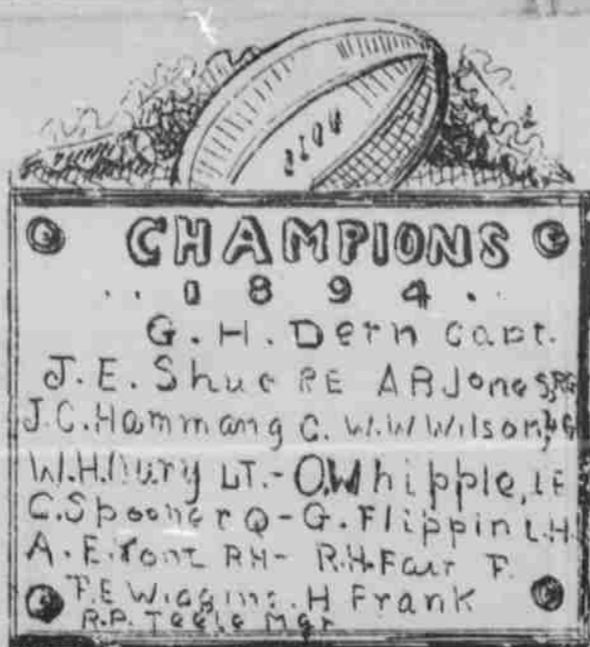 CHAMPIONS
1894
G. H. Dern Capt.
J. E. Shue RE A B Jones, RG
J. C. Hammang C. W. W Wilson, LG
W. H. Dury LT. - O. Whipple, LE
C. Spooner Q - G. Flippin L. H.
A. E. Yont RH - R. H. Fair F.
F. E Wiggins. H Frank
R. P. Teele Mgr